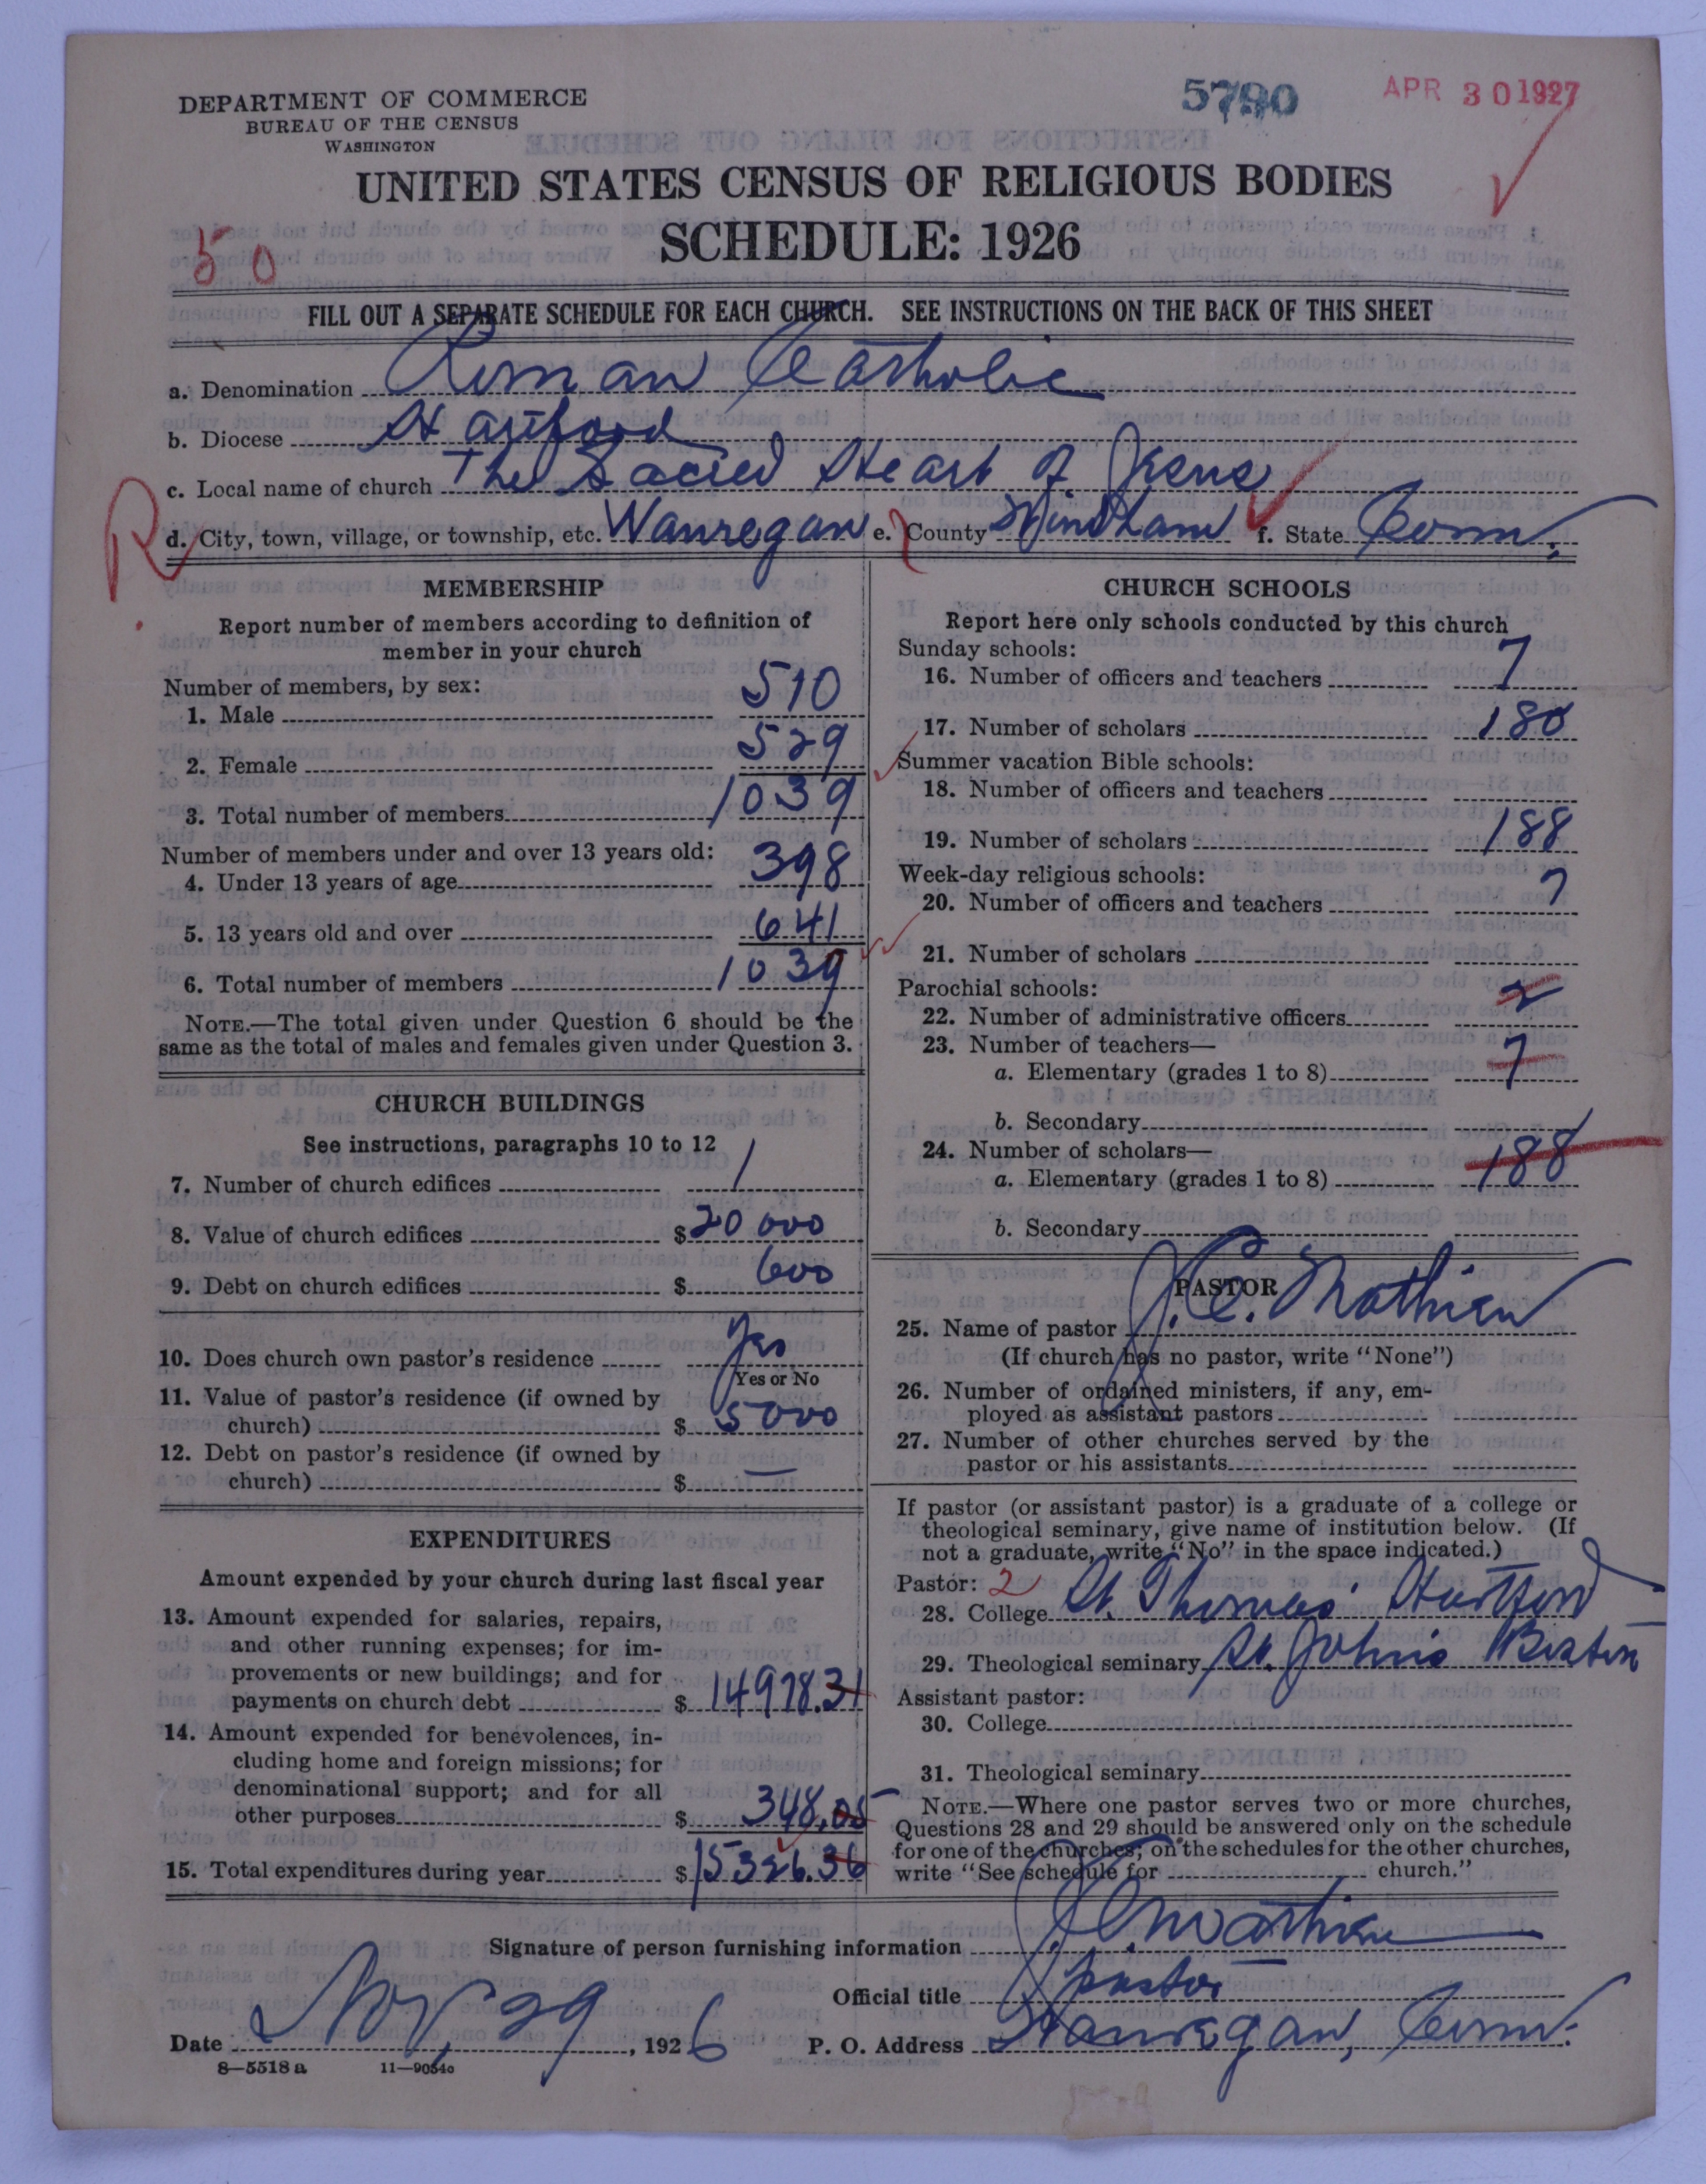 DEPARTMENT OF COMMERCE
BUREAU OF THE CENSUS
WASHINGTON
5790
APR 30 1927
UNITED STATES CENSUS OF RELIGIOUS BODIES
SCHEDULE: 1926
50
FILL OUT A SEPARATE SCHEDULE FOR EACH CHURCH. SEE INSTRUCTIONS ON THE BACK OF THIS SHEET
a. Denomination Roman Catholic
b. Diocese Hartford
c. Local name of church The Sacred Heart of Jesus
R
d. City, town, village, or township, etc. Wauregan e. County Windham f. State Conn.
MEMBERSHIP
Report number of members according to definition of
member in your church
Number of members, by sex:
1. Male 510
2. Female 529
3. Total number of members 1039
Number of members under and over 13 years old:
4. Under 13 years of age 398
5. 13 years old and over 641
6. Total number of members 1039
NOTE.—The total given under Question 6 should be the
same as the total of males and females given under Question 3.
CHURCH BUILDINGS
See instructions, paragraphs 10 to 12
7. Number of church edifices 1
8. Value of church edifices $20000
9. Debt on church edifices $ 600
10. Does church own pastor's residence Yes
Yes or No
11. Value of pastor's residence (if owned by
church) $ 5000
12. Debt on pastor's residence (if owned by
church) $ —
EXPENDITURES
Amount expended by your church during last fiscal year
13. Amount expended for salaries, repairs,
and other running expenses; for im-
provements or new buildings; and for
payments on church debt $ 14978.31
14. Amount expended for benevolences, in-
cluding home and foreign missions; for
denominational support; and for all
other purposes $ 348.05
15. Total expenditures during year $15326.36
CHURCH SCHOOLS
Report here only schools conducted by this church
Sunday schools:
16. Number of officers and teachers 7
17. Number of scholars 180
Summer vacation Bible schools:
18. Number of officers and teachers
19. Number of scholars 188
Week-day religious schools:
20. Number of officers and teachers 7
21. Number of scholars
Parochial schools:
22. Number of administrative officers 2
23. Number of teachers—
a. Elementary (grades 1 to 8) 7
b. Secondary
24. Number of scholars—
a. Elementary (grades 1 to 8) 188
b. Secondary
PASTOR
25. Name of pastor J. C. Mathieu
(If church has no pastor, write "None")
26. Number of ordained ministers, if any, em-
ployed as assistant pastors
27. Number of other churches served by the
pastor or his assistants
If pastor (or assistant pastor) is a graduate of a college or
theological seminary, give name of institution below. (If
not a graduate, write "No" in the space indicated.)
Pastor: 2
28. College St. Thomas Hartford
29. Theological seminary St. Johns Boston
Assistant pastor:
30. College
31. Theological seminary
NOTE.—Where one pastor serves two or more churches,
Questions 28 and 29 should be answered only on the schedule
for one of the churches; on the schedules for the other churches,
write "See schedule for church."
Signature of person furnishing information J. C. Mathieu
Official title pastor
Date Nov. 29, 1926 P. O. Address Wauregan, Conn.
8—5518 a 11—9054a